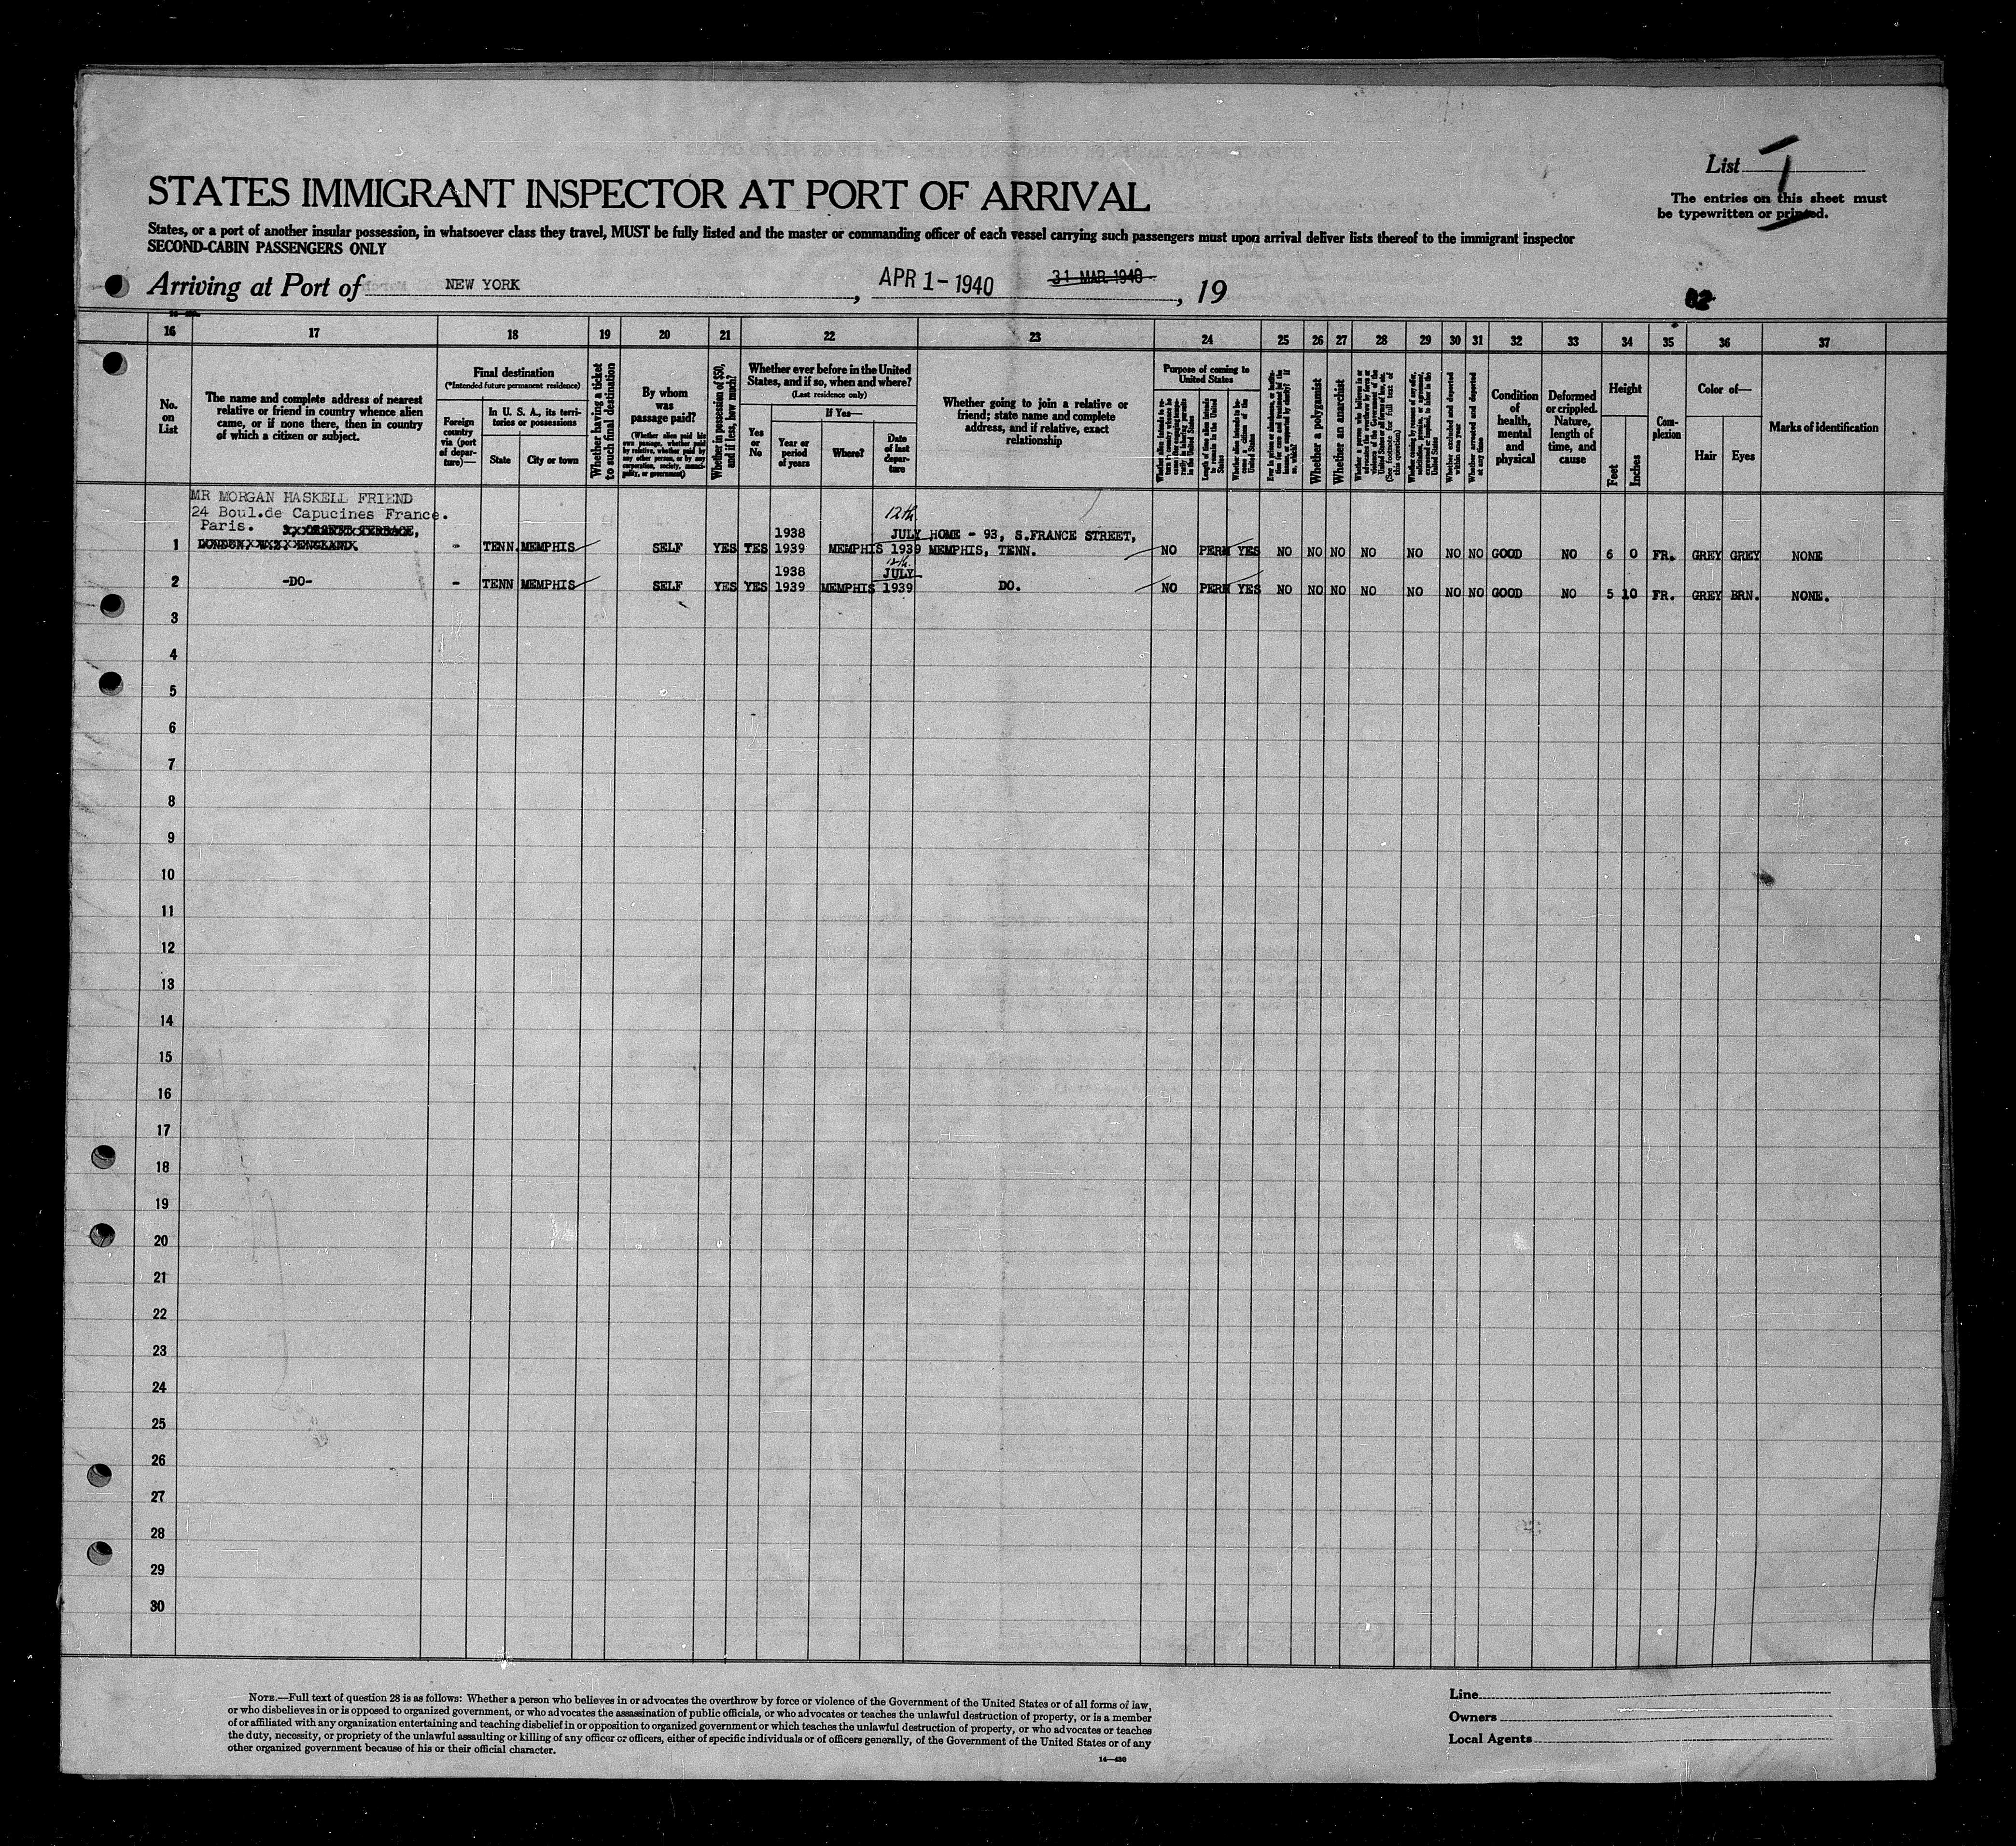 List 1
The entries on this sheet must
be typewritten or printed.
STATES IMMIGRANT INSPECTOR AT PORT OF ARRIVAL
States, or a port of another insular possession, in whatsoever class they travel, MUST be fully listed and the master or commanding officer of each vessel carrying such passengers must upon arrival deliver lists thereof to the immigrant inspector
SECOND-CABIN PASSENGERS ONLY
Arriving at Port of NEW YORK, APR 1-1940 31 MAR 1940, 19
82
16 17 18 19 20 21 22 23 24 25 26 27 28 29 30 31 32 33 34 35 36 37
No.
on
List
The name and complete address of nearest
relative or friend in country whence alien
came, or if none there, then in country
of which a citizen or subject.
Final destination
(*Intended future permanent residence)
Foreign
country
via (port
of depar-
ture)—
In U. S. A., its terri-
tories or possessions
State
City or town
Whether having a ticket
to such final destination
By whom
was
passage paid?
(Whether alien paid his
own passage, whether paid
by relative, whether paid by
any other person, or by any
corporation, society, munici-
pality, or government)
Whether in possession of $50,
and if less, how much?
Whether ever before in the United
States, and if so, when and where?
(Last residence only)
Yes
or
No
If Yes—
Year or
period
of years
Where?
Date
of last
depar-
ture
Whether going to join a relative or
friend; state name and complete
address, and if relative, exact
relationship
Purpose of coming to
United States
Length of time alien intends
to remain in the United
States
Whether alien intends to be-
come a citizen of the
United States
Whether a polygamist
Whether an anarchist
(See footnote for full text of
this question)
Whether excluded and deported
within one year
Whether arrested and deported
at any time
Condition
of
health,
mental
and
physical
Deformed
or crippled.
Nature,
length of
time, and
cause
Height
Feet
Inches
Com-
plexion
Color of—
Hair
Eyes
Marks of identification
MR MORGAN HASKELL FRIEND
24 Boul.de Capucines France.
Paris.
LONDON W.2. ENGLAND.
1 - TENN. MEMPHIS SELF YES YES 1938 1939 MEMPHIS 12th JULY 1939 HOME - 93, S.FRANCE STREET,
MEMPHIS, TENN. NO PERM YES NO NO NO NO NO NO NO GOOD NO 6 0 FR. GREY GREY NONE
2 -DO- - TENN MEMPHIS SELF YES YES 1938 1939 MEMPHIS 12th JULY 1939 DO. NO PERM YES NO NO NO NO NO NO NO GOOD NO 5 10 FR. GREY BRN. NONE.
3
4
5
6
7
8
9
10
11
12
13
14
15
16
17
18
19
20
21
22
23
24
25
26
27
28
29
30
NOTE.—Full text of question 28 is as follows: Whether a person who believes in or advocates the overthrow by force or violence of the Government of the United States or of all forms of law,
or who disbelieves in or is opposed to organized government, or who advocates the assassination of public officials, or who advocates or teaches the unlawful destruction of property, or is a member
of or affiliated with any organization entertaining and teaching disbelief in or opposition to organized government or which teaches the unlawful destruction of property, or who advocates or teaches
the duty, necessity, or propriety of the unlawful assaulting or killing of any officer or officers, either of specific individuals or of officers generally, of the Government of the United States or of any
other organized government because of his or their official character.
14—430
Line
Owners
Local Agents